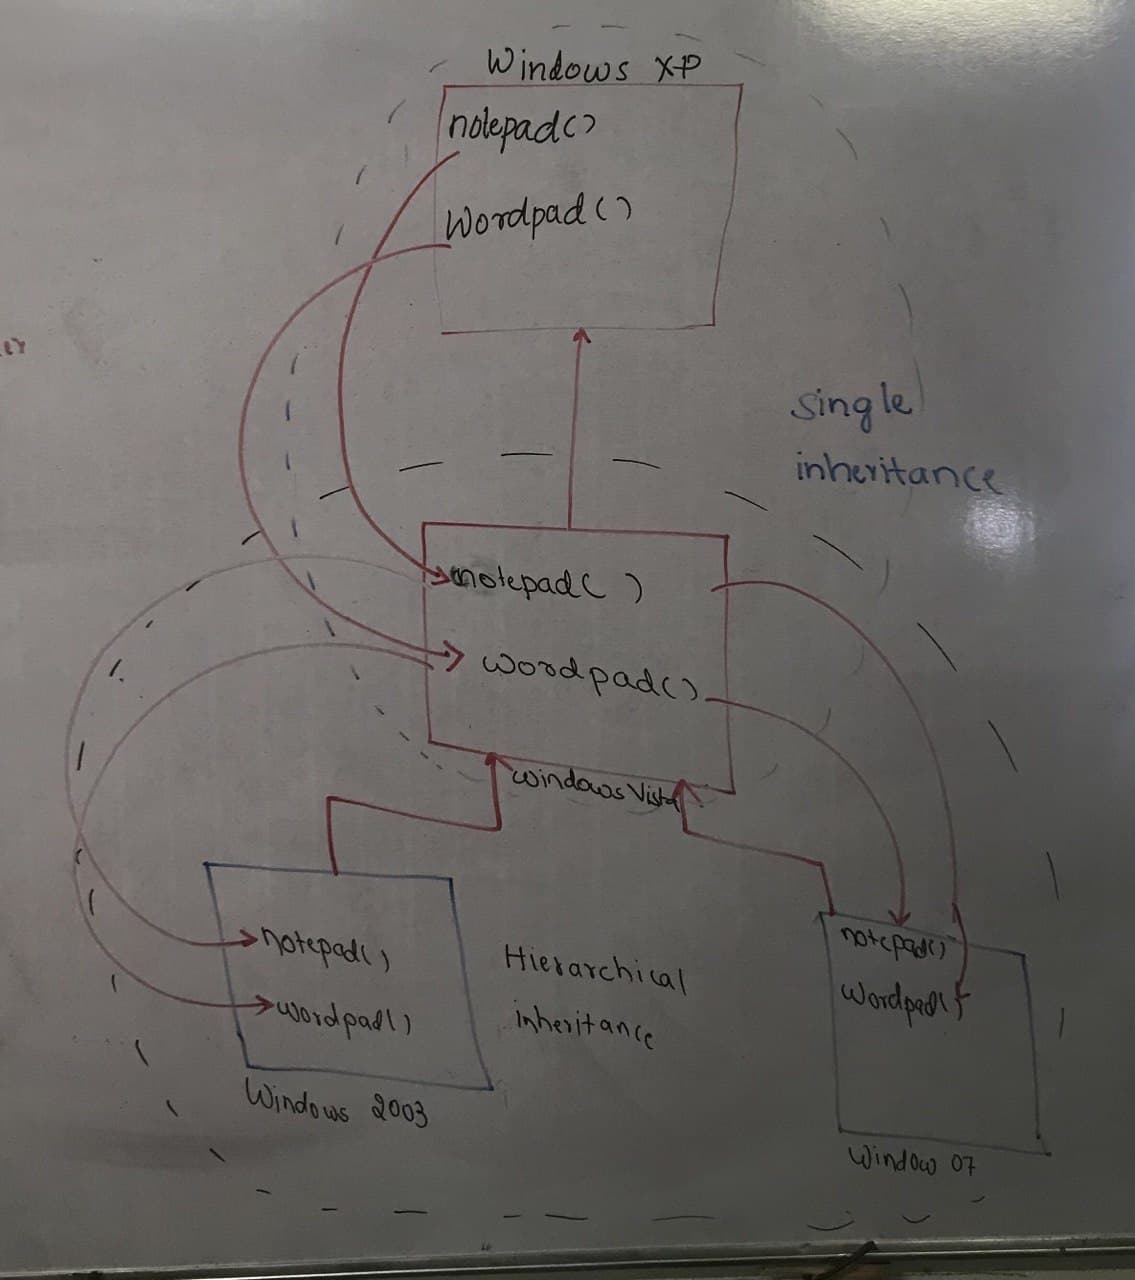 Windows XP
notepad()
Wordpad()
single
inheritance
notepad( )
wordpad()
windows Vista
notepad()
wordpad()
Hierarchical
inheritance
Windows 2003
notepad()
Wordpad()
Window 07